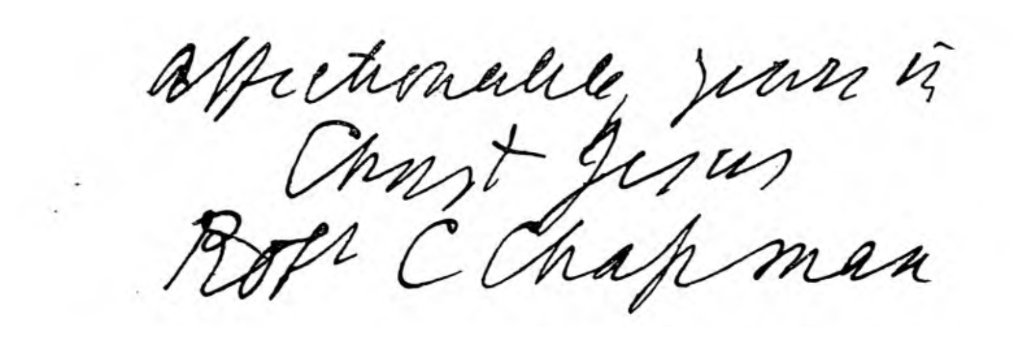 affectionately yours in
Christ Jesus
Robt C Chapman